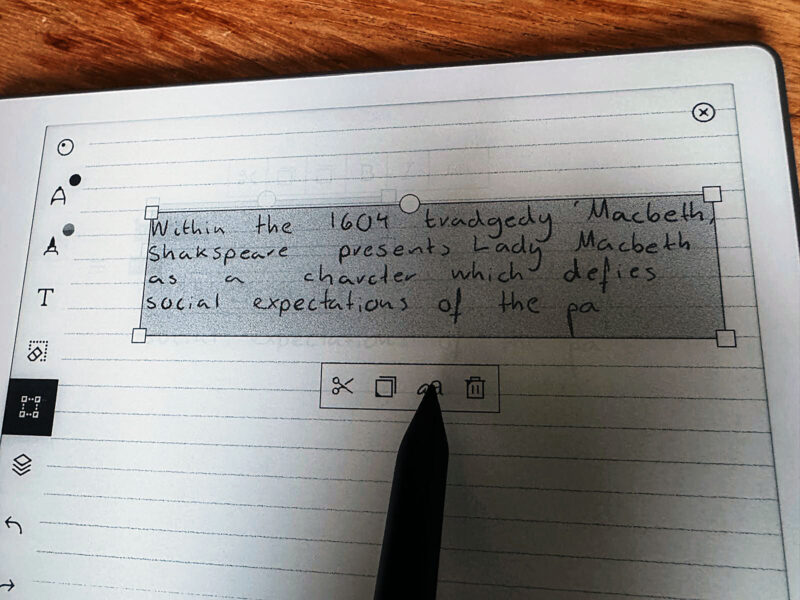 Within the 1604 tradgedy 'Macbeth,
Shakspeare presents Lady Macbeth
as a charcter which defies
social expectations of the pa
A
A
T
aa